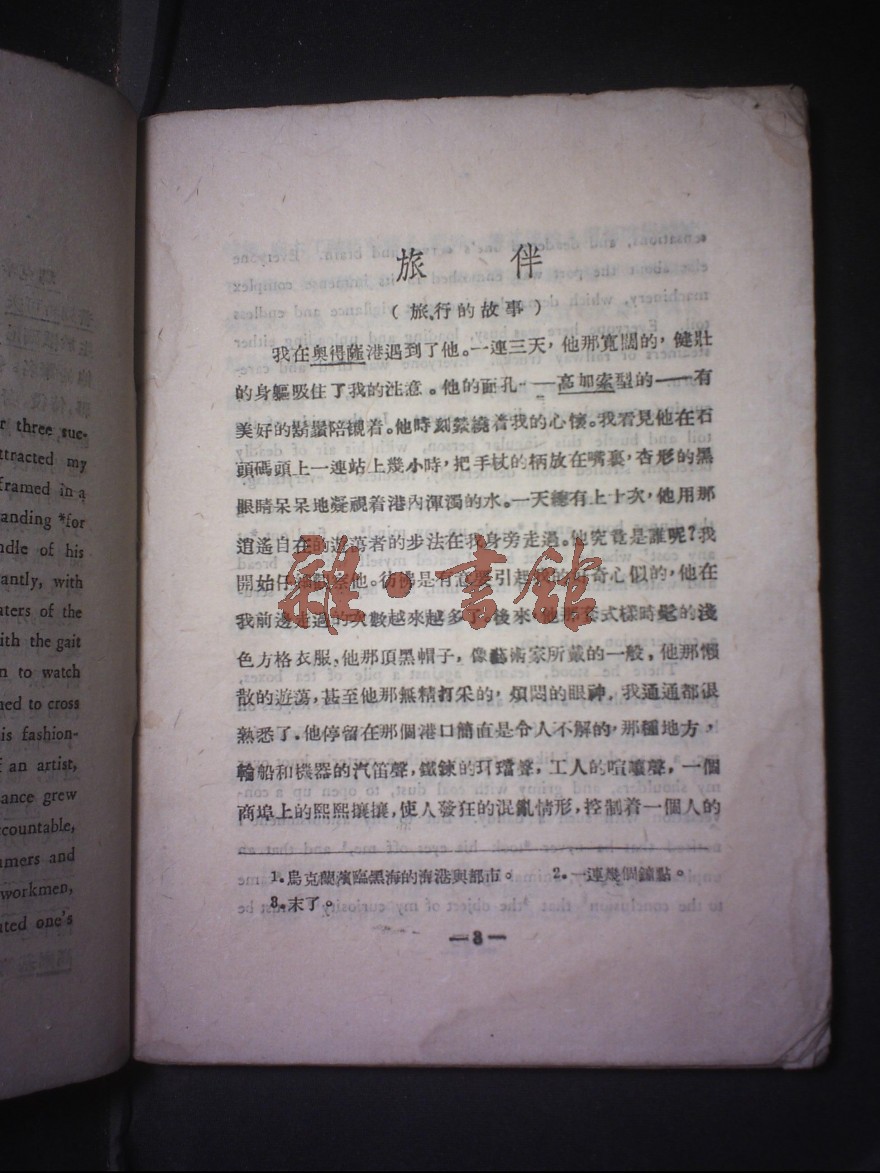 r three suc-
ttracted my
framed in a
anding *for
ndle of his
antly, with
aters of the
ith the gait
n to watch
ned to cross
is fashion-
f an artist,
ance grew
ccountable,
amers and
workmen,
ated one's
旅 伴
（旅行的故事）
我在奥得薩港遇到了他。一連三天，他那寬闊的，健壯
的身軀吸住了我的注意。他的面孔——高加索型的——有
美好的鬍鬚陪襯着。他時刻縈繞着我的心懷。我看見他在石
頭碼頭上一連站上幾小時，把手杖的柄放在嘴裏，杏形的黑
眼睛呆呆地凝視着港內渾濁的水。一天總有上十次，他用那
逍遙自在的遊蕩者的步法在我身旁走過。他究竟是誰呢？我
開始仔細觀察他。彷彿是有意要引起我的好奇心似的，他在
我前邊走過的次數越來越多了。後來，他那套式樣時髦的淺
色方格衣服、他那頂黑帽子，像藝術家所戴的一般，他那懶
散的遊蕩，甚至他那無精打采的，煩悶的眼神，我通通都很
熟悉了。他停留在那個港口簡直是令人不解的，那種地方，
輪船和機器的汽笛聲，鐵鍊的玎璫聲，工人的喧嚷聲，一個
商埠上的熙熙攘攘，使人發狂的混亂情形，控制着一個人的
1. 烏克蘭濱臨黑海的海港與都市。 2. 一連幾個鐘點。
3. 末了。
—3—
雜·書館